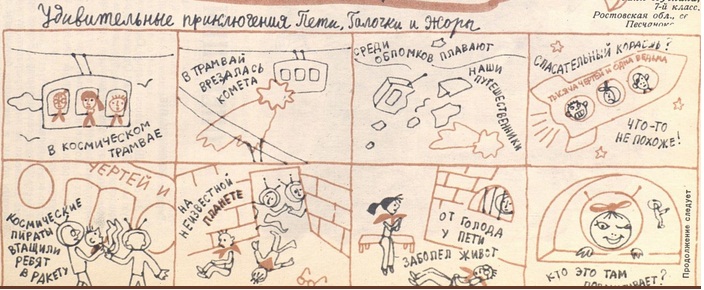 Удивительные приключения Пети, Галочки и Жоры
7-й класс.
Ростовская обл., с.
В КОСМИЧЕСКОМ
ТРАМВАЕ
В ТРАМВАЙ
ВРЕЗАЛАСЬ
КОМЕТА
СРЕДИ
ОБЛОМКОВ ПЛАВАЮТ
НАШИ
ПУТЕШЕСТВЕННИКИ
СПАСАТЕЛЬНЫЙ КОРАБЛЬ?
ТЫСЯЧА ЧЕРТЕЙ И ОДНА ВЕДЬМА
ЧТО-ТО
НЕ ПОХОЖЕ!
ЧЕРТЕЙ И
КОСМИЧЕСКИЕ
ПИРАТЫ
ВТАЩИЛИ
РЕБЯТ
В РАКЕТУ
НА
НЕИЗВЕСТНОЙ
ПЛАНЕТЕ
ОТ ГОЛОДА
У ПЕТИ
ЗАБОЛЕЛ ЖИВОТ
КТО ЭТО ТАМ
Продолжение следует